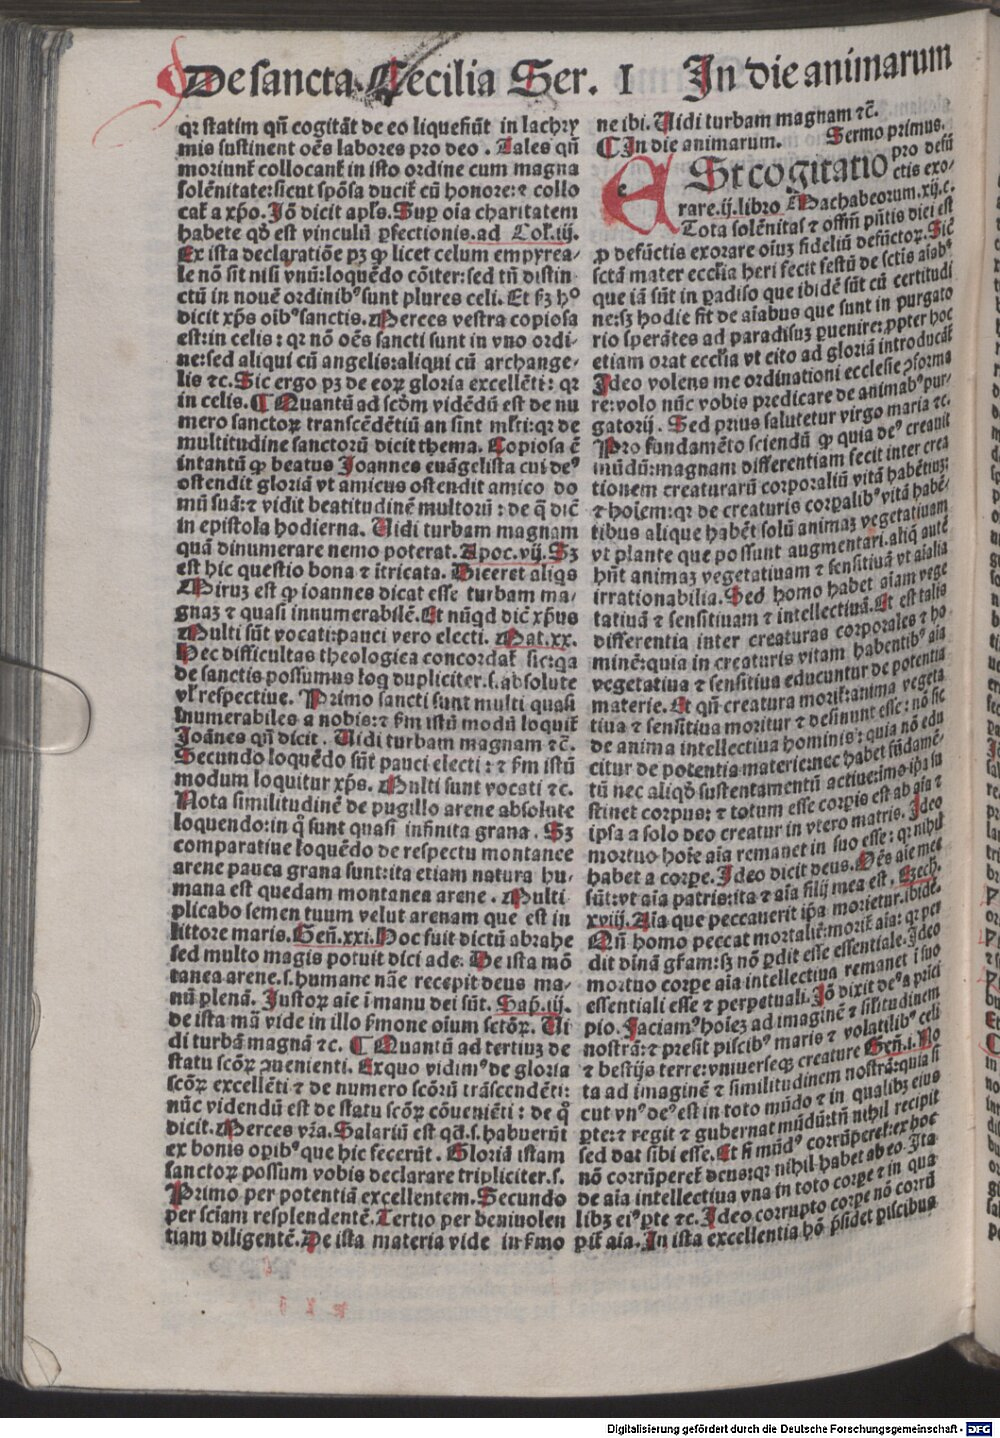 De sancta Cecilia Ser. I In die animarum
qꝛ statim qñ cogitāt de eo liquefiūt in lachꝛy
mis sustinent oēs labores pro deo. Tales qñ
moriunt̉ collocant̉ in isto ordine cum magna
solēnitate: sicut spōsa ducit̉ cū honore: ⁊ collo
cat̉ a xp̄o. Jō dicit apl̄s. Sup oīa charitatem
habete qd̄ est vinculū ꝑfectionis. ad Col̄. iij.
Ex ista declaratiōe pꝫ ꝙ licet celum empyrea-
le nō sit nisi vnū: loquēdo cōiter: sed tn̄ distin
ctū in nouē ordinibꝰ sunt plures celi. Et ẜꝫ hº
dicit xp̄s oībꝰ sanctis. Merces vestra copiosa
est: in celis: qꝛ nō oēs sancti sunt in vno ordi-
ne: sed aliqui cū angelis: aliqui cū archange-
lis ⁊c. Sic ergo pꝫ de eoꝝ gloria excellēti: qꝛ
in celis. ¶ Quantū ad scd̄m vidēdū est de nu
mero sanctoꝝ transcēdētiū an sint ml̄ti: qꝛ de
multitudine sanctorū dicit thema. Copiosa ē
intantū ꝙ beatus Joannes euāgelista cui deꝰ
ostendit gloriā vt amicus ostendit amico do
mū suā: ⁊ vidit beatitudinē multorū: de q̄ dic̄
in epistola hodierna. Uidi turbam magnam
quā dinumerare nemo poterat. Apoc. vij. Sꝫ
est hic questio bona ⁊ ītricata. Diceret aliqs
Miruꝫ est ꝙ ioannes dicat esse turbam ma-
gnaꝫ ⁊ quasi innumerabilē. Et nūqd dic̄ xp̄us
Multi sūt vocati: pauci vero electi. Mat. xx.
Hec difficultas theologica concordat̉ sic: qa
de sanctis possumus loq dupliciter. s. absolute
vl̓ respectiue. Primo sancti sunt multi quasi
innumerabiles a nobis: ⁊ ẜm istū modū loquit̉
Joānes qñ dicit. Uidi turbam magnam ⁊c̄.
Secundo loquēdo sūt pauci electi: ⁊ ẜm istū
modum loquitur xp̄s. Multi sunt vocati ⁊c.
Nota similitudinē de pugillo arene absolute
loquendo: in q̄ sunt quasi infinita grana. Sꝫ
comparatiue loquēdo de respectu montance
arene pauca grana sunt: ita etiam natura hu-
mana est quedam montanea arene. Multi
plicabo semen tuum velut arenam que est in
littore maris. Gen̄. xxi. Hoc fuit dictū abrahe
sed multo magis potuit dici ade. De ista mō
tanea arene. s. humane nāe recepit deus ma-
nū plenā. Justoꝝ aīe ī manu dei sūt. Sap̄. iij.
de ista mā vide in illo ẜmone oīum sctōꝝ. Ui
di turbā magnā ⁊c. ¶ Quantū ad tertiuꝫ de
statu scōꝝ ꝯuenienti. Exquo vidimꝰ de gloria
scōꝝ excellēti ⁊ de numero scōrū trāscendēti:
nūc videndū est de statu scōꝝ cōueniēti: de q̊
dicit. Merces vr̄a. Salariū est qd̄. s. habuerūt
ex bonis opibꝰ que hic fecerūt. Gloriā istam
sanctoꝝ possum vobis declarare tripliciter. s.
Primo per potentiā excellentem. Secundo
per sciam̄ resplendentē. Tertio per beniuolen
tiam diligentē. De ista materia vide in ẜmo
ne ibi. Uidi turbam magnam ⁊c̄.
¶ In die animarum. Sermo primus.
ESt cogitatio pro defū
ctis exo-
rare. ij. libro Machabeorum. xij. c.
Tota solēnitas ⁊ offm̄ pn̄tis diei est
ꝓ defūctis exorare oīuꝫ fideliū defūctoꝝ. Sic̄
sctā mater eccl̄ia heri fecit festū de sctis aīabꝰ
que iā sūt in ꝑadiso que ibidē sūt cū certitudi
ne: sꝫ hodie fit de aīabus que sunt in purgato
rio sperātes ad paradisuꝫ ꝑuenire: ꝓpter hoc
etiam orat eccl̄ia vt cito ad gloriā introducāt̉
Ideo volens me ordinationi ecclesie ꝯforma
re: volo nūc vobis predicare de animabꝰ pur-
gatorij. Sed prius salutetur virgo maria ⁊c.
Pro fundamēto sciendū ꝙ quia deꝰ creauit
mūdū: magnam differentiam fecit inter crea
tionem creaturarū corporaliū vitā habētiuꝫ
⁊ hoīem: qꝛ de creaturis corꝑalibꝰ vitā habē-
tibus alique habēt solū animaꝫ vegetatiuam
vt plante que possunt augmentari. aliq̄ autē
hn̄t animaꝫ vegetatiuam ⁊ sensitiuā vt aīalia
irrationabilia. Sed homo habet aīam vege
tatiuā ⁊ sensitiuam ⁊ intellectiuā. Et est talis
differentia inter creaturas corporales ⁊ ho
minē: quia in creaturis vitam habentibꝰ aīa
vegetatiua ⁊ sensitiua educuntur de potentia
materie. Et qñ creatura morit̉: anima vegeta
tiua ⁊ sensitiua moritur ⁊ desinunt esse: nō sic
de anima intellectiua hominis: quia nō edu
citur de potentia materie: nec habet fūdamē-
tū nec aliqd̄ sustentamentū actiue: imo ip̄a su
stinet corpus: ⁊ totum esse corpis est ab aīa ⁊
ipsa a solo deo creatur in vtero matris. Ideo
mortuo hoīe aīa remanet in suo esse: qꝛ nihil
habet a corpe. Ideo dicit deus. Oēs aīe mee
sūt: vt aīa patris: ita ⁊ aīa filij mea est. Ezech.
xviij. Aīa que peccauerit ip̄a morietur. ibidē.
Qñ homo peccat mortalit̉: morit̉ aīa: qꝛ per
dit dīnā gr̄am: sꝫ nō ꝑdit esse essentiale. Ideo
mortuo corpe aīa intellectiua remanet ī suo
essentiali esse ⁊ perpetuali. Jō dixit deꝰ a prīci
pio. Faciamꝰ hoīeꝫ ad imaginē ⁊ sīlitudinem
nostrā: ⁊ presit piscibꝰ maris ⁊ volatilibꝰ celi
⁊ bestijs terre: vniuerseqꝫ creature Gen̄. i. No
ta ad imaginē ⁊ similitudinem nostrā: quia si
cut vnꝰ deꝰ est in toto mūdo ⁊ in qualibꝫ eius
ꝑte: ⁊ regit ⁊ gubernat mūdū: tn̄ nihil recipit
sed dat sibi esse. Et si mūdꝰ corrūperet̉: ex hoc
nō corrūperet̉ deus: qꝛ nihil habet ab eo. Ita
de aīa intellectiua vna in toto corpe ⁊ in qua
libꝫ eiꝰ ꝑte ⁊c. Ideo corrupto corpe nō corrū
pit̉ aīa. In ista excellentia hō p̄sidet piscibus
Digitalisierung gefördert durch die Deutsche Forschungsgemeinschaft - DFG